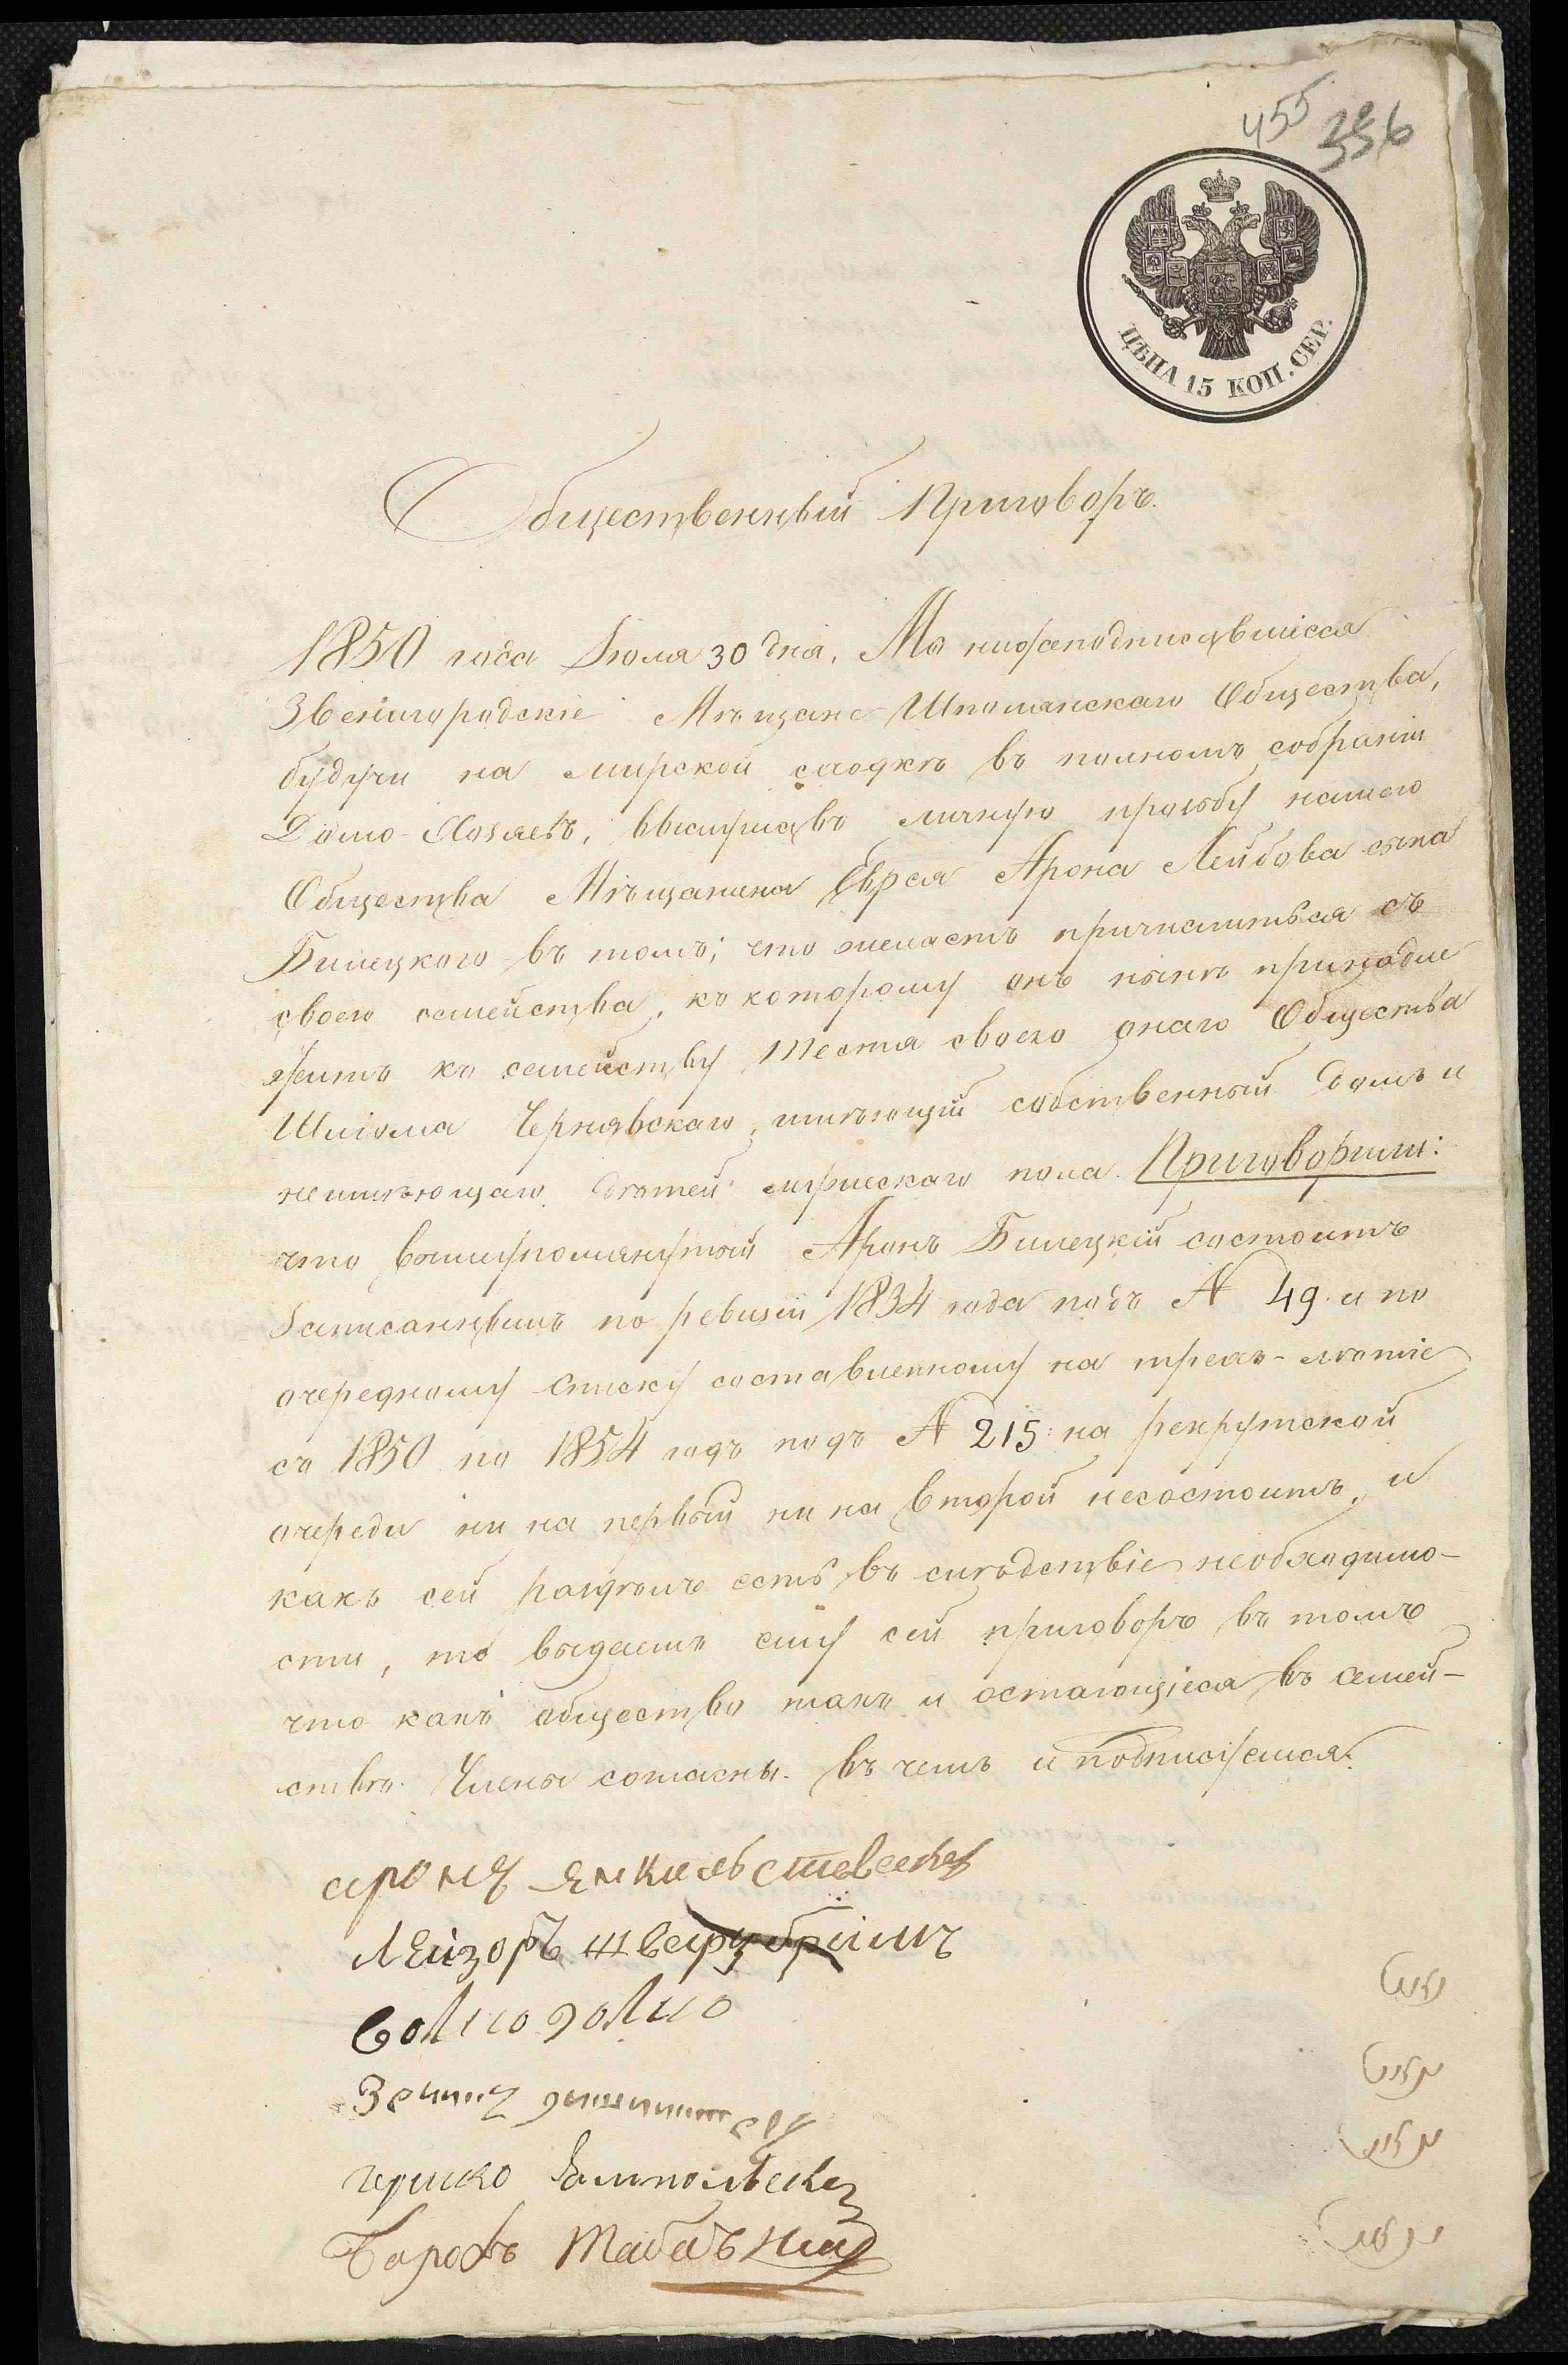 455
356
ЦѢНА 15 КОП. СЕР.
Общественный Приговоръ.
1850 года Іюля 30 дня. Мы нижеподписавшіеся
Звенигородскіе Мѣщане Шполянскаго Общества,
будучи на мирской сходкѣ въ полномъ собраніи
Домо-Хозяевъ, выслушавъ личную прозьбу нашего
Общества Мѣщанина Еврея Арона Лейбова сына
Билецкого въ томъ; что желаетъ причислиться съ
своего семейства, къ которому онъ нынѣ принадле
житъ къ семейству Тестя своего онаго Общества
Шліома Чернявскаго, имѣющій собственный домъ и
неимѣющаго дѣтей мужескаго пола Приговорили:
что вышеупомянутый Аронъ Билецкій состоитъ
Записаннымъ по ревизіи 1834 года подъ № 49 и по
очередному Списку составленному на трехъ-лѣтіе
съ 1850 по 1854 годъ подъ № 215 на рекрутской
очереди ни на первый ни на второй несостоитъ, и
какъ сей раздѣлъ есть въ слѣдствіе необходимо-
сти, то выдаемъ ему сей приговоръ въ томъ
что какъ общество такъ и остающіеся въ семей-
ствѣ Члены согласны. въ чемъ и подписуемся.
Лейзоръ
Борохъ